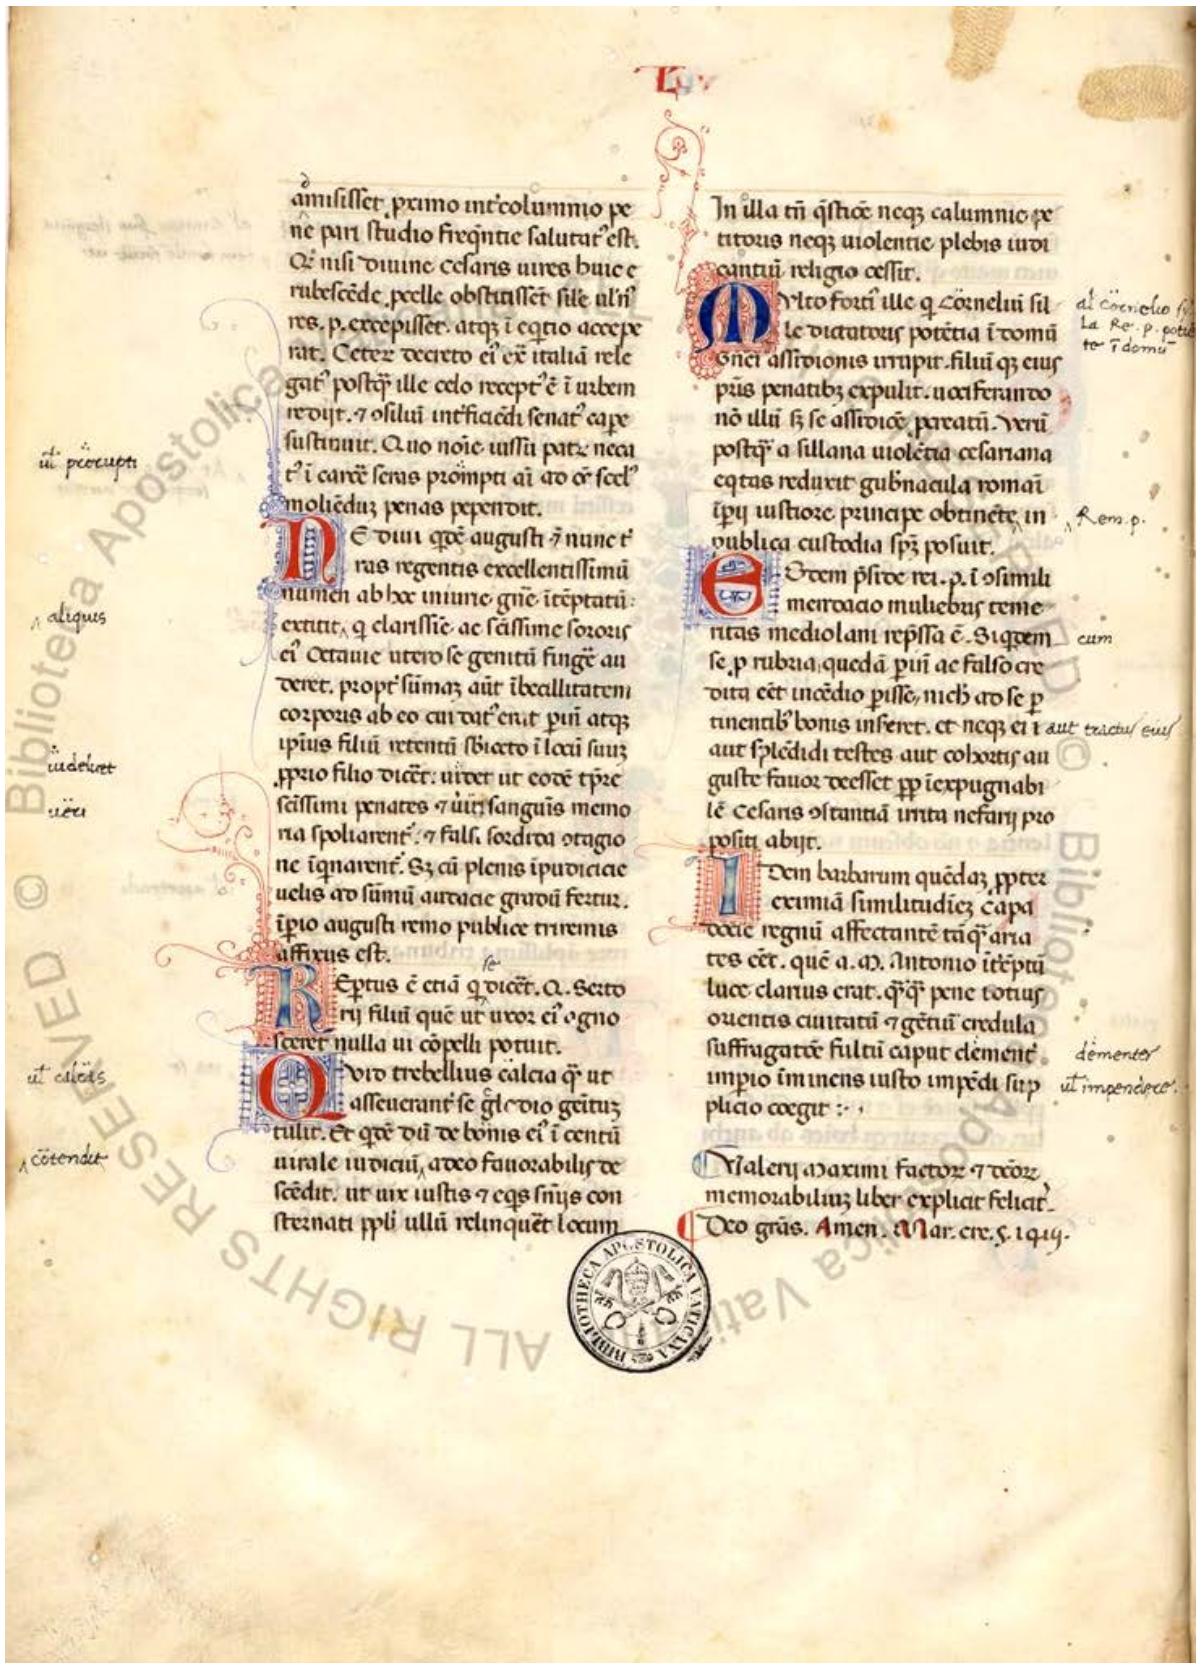 Lix
admisisset primo int̉columnio pe
ne pari studio freq̃ntie salutat᷒ est.
Qđ nisi diuine cesaris uires huic e
rubescẽde ꝓcelle obstitissẽt sil̃e uuln᷒
res. p. excepisset. atqꝫ ĩ eq̃tio accepe
rat. Ceteꝝ decreto ei᷒ ex̃ italiã rele
gat᷒ postq̃ꝫ ille celo recept᷒ ẽ ĩ urbem
redijt. ⁊ ꝯsiliũ int̉ficiẽdi senat᷒ cape
sustinuit. Quo noĩe iussu patꝝ neca
t᷒ ĩ carc̃e seras prompti aĩ ad oẽ scel᷒
moliẽduꝫ penas pependit.
NE diui qđẽ augusti ẽ nunc t̉
ras regentis excellentissimũ
numen ab hoc iniurie gñe ĩtẽptatũ
extitit q̇ clarissĩe ac sc̃issime sororis
ei᷒ Octauie utero se genitũ fingẽ au
deret. propt̉ sũmaꝫ aũt ĩbecillitatem
corporis ab eo cui dat᷒ erat ꝑiñ atqꝫ
ipsius filiũ retentũ sb̃iecto ĩ locũ suuꝫ
ꝓprio filio dicẽt: uidet ut eodẽ tp̃re
sc̃issimi penates ⁊ ueri sanguis memo
ria spoliarent᷒. ⁊ falsi sordida ꝯtagio
ne ĩqnarent᷒. Sꝫ cũ plenis ĩpudicicie
uelis ad sũmũ audacie gradũ fertur.
ĩꝑio augusti remo publice triremis
affixus est.
REpertus ẽ etiã q̇ se dicẽt. Q. Serto
rij filiũ quẽ ut uxor ei᷒ ꝯgno
sceret nulla ui cõpelli potuit.
QVid trebellius calcia q̃ꝫ ut
asseuerant᷒ se gl̃odio geĩtuꝫ
tulit. Et qđẽ dũ de bonis ei᷒ ĩ centũ
uirale iudiciũ adeo fauorabilis de
scẽdit. ut uix iustis ⁊ eqs sñijs con
sternati ppl̃i ullũ relinquẽt locum
In illa tñ q̃stiõe neqꝫ calumnie pe
titoris neqꝫ uiolentie plebis iudi
cantiũ religio cessit.
MVlto forti᷒ ille q̇ Cornelui sil
le dictatoris potẽtia ĩ domũ
Gnei assidionis irrupit. filiũ qꝫ eius
p̃ris penatibꝫ expulit. uociferando
nõ illũ sꝫ se assidiõe ꝓcreatũ. Verũ
postq̃ꝫ a sillana uiolẽtia cesariana
eq̃tas reduxit gub̃nacula romaĩ
ĩꝑij iustiore principe obtinẽte in
publica custodia sp̃ꝫ posuit.
EOdem p̃side rei. p. ĩ ꝯsimili
mendacio muliebris teme
ritas mediolani rep̃ssa ẽ. Siqdem
se. ꝓ rubria quedã ꝑiñ ac falso cre
dita eẽt incẽdio ꝑisse, nichil ad se ꝑ
tinentib᷒ bonis inseret. et neqꝫ ei ĩ
aut sp̃lẽdidi testes aut cohortis au
guste fauor deesset ꝓp̃ ĩexpugnabi
lẽ Cesaris ꝯstantiã irrita nefarij pro
positi abijt.
IDem barbarum quẽdaꝫ ꝓpter
eximiã similitudĩeꝫ capa
docie regnũ affectantẽ tãq̃ꝫ aria
tes eẽt. quẽ a. M. Antonio ĩt̉ẽptũ
luce clarius erat. q̃ꝫq̃ꝫ pene totius
orientis ciuitatũ ⁊ gẽtiũ credula
suffragatõe fultũ caput clement᷒
imperio ĩminens iusto impẽdi sup
plicio coegit :·
Valerij Maximi factoꝝ ⁊ dc̃oꝝ
memorabiliuꝫ liber explicit felicit̉.
Deo grãs. Amen. Mar. cre. ẜ. 1413.
ul̃ p̃rerupti
aliquis
iuderet
ueri
ul̃ calcas
cõtendit
al̃ cornelio sy
la Re. p. potiẽ
te ĩ domũ
Rem. p.
cum
aut tractus eius
dẽmenter
ul̃ impendere.
BIBLIOTHECA APOSTOLICA VATICANA
© Biblioteca Apostolica Vaticana ALL RIGHTS RESERVED